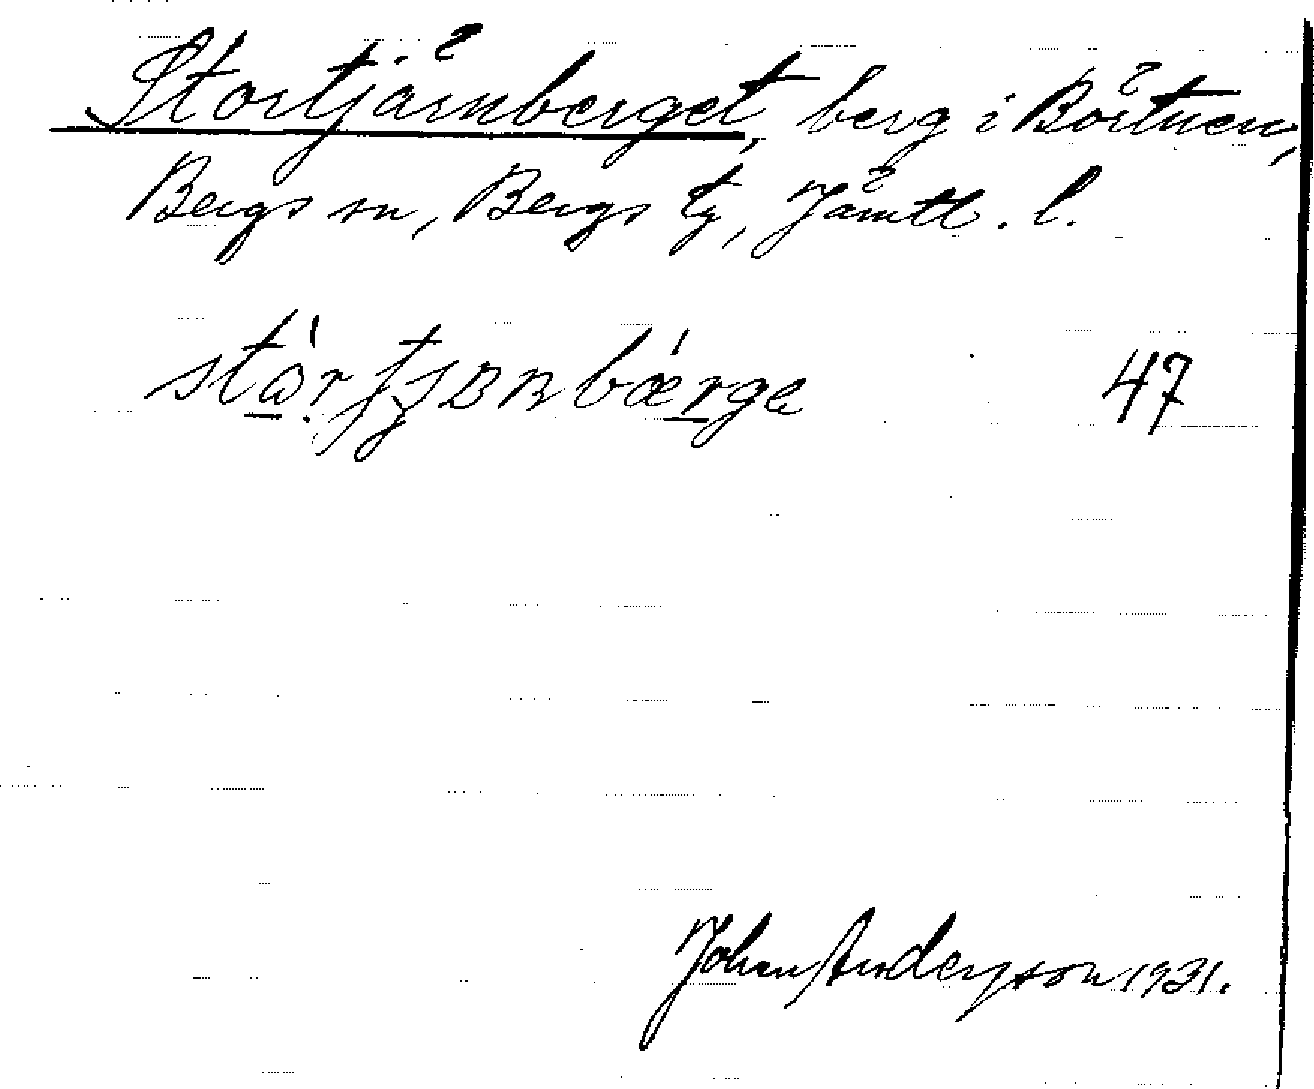 Stortjärnberget, berg i Börtnen,
Bergs sn, Bergs tg, Jämtl. l.
47
Johan Anderson 1931.